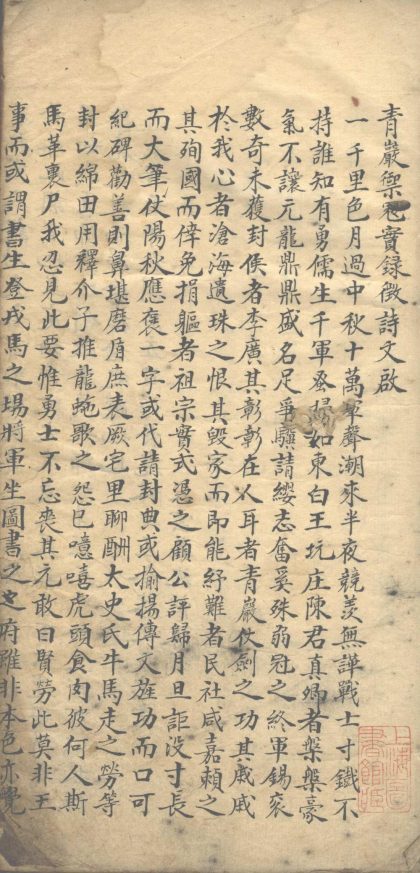 青巖禦寇實錄徵詩文啟
一千里色月過中秋十萬軍聲潮來半夜競羨無譁戰士寸鐵不
持誰知有勇儒生千軍登婦如東白王坑庄陳君真卿者槃槃豪
氣不讓元龍鼎鼎盛名足爭驥請纓志奮奚殊弱冠之終軍錫衮
數奇未獲封侯者李廣其彰彰在人耳者青巖仗劍之功其戚戚
於我心者滄海遺珠之恨其毀家而即能紓難者民社咸嘉賴之
其殉國而倖免捐軀者祖宗實式憑之顧公評歸月旦詎没寸長
而大筆仗陽秋應褒一字或代請封典或揄揚傳文旌功而口可
紀碑勸善則鼻堪磨盾庶表厥宅里聊酬太史氏牛馬走之勞等
封以綿田用釋介子推龍虵歌之怨巳噫嘻虎頭食肉彼何人斯
馬革裹尸我忍見此要惟勇士不忘喪其元敢曰賢勞此莫非王
事而或謂書生登戎馬之場將軍坐圖書之府雖非本色亦覺
上海圖書館藏